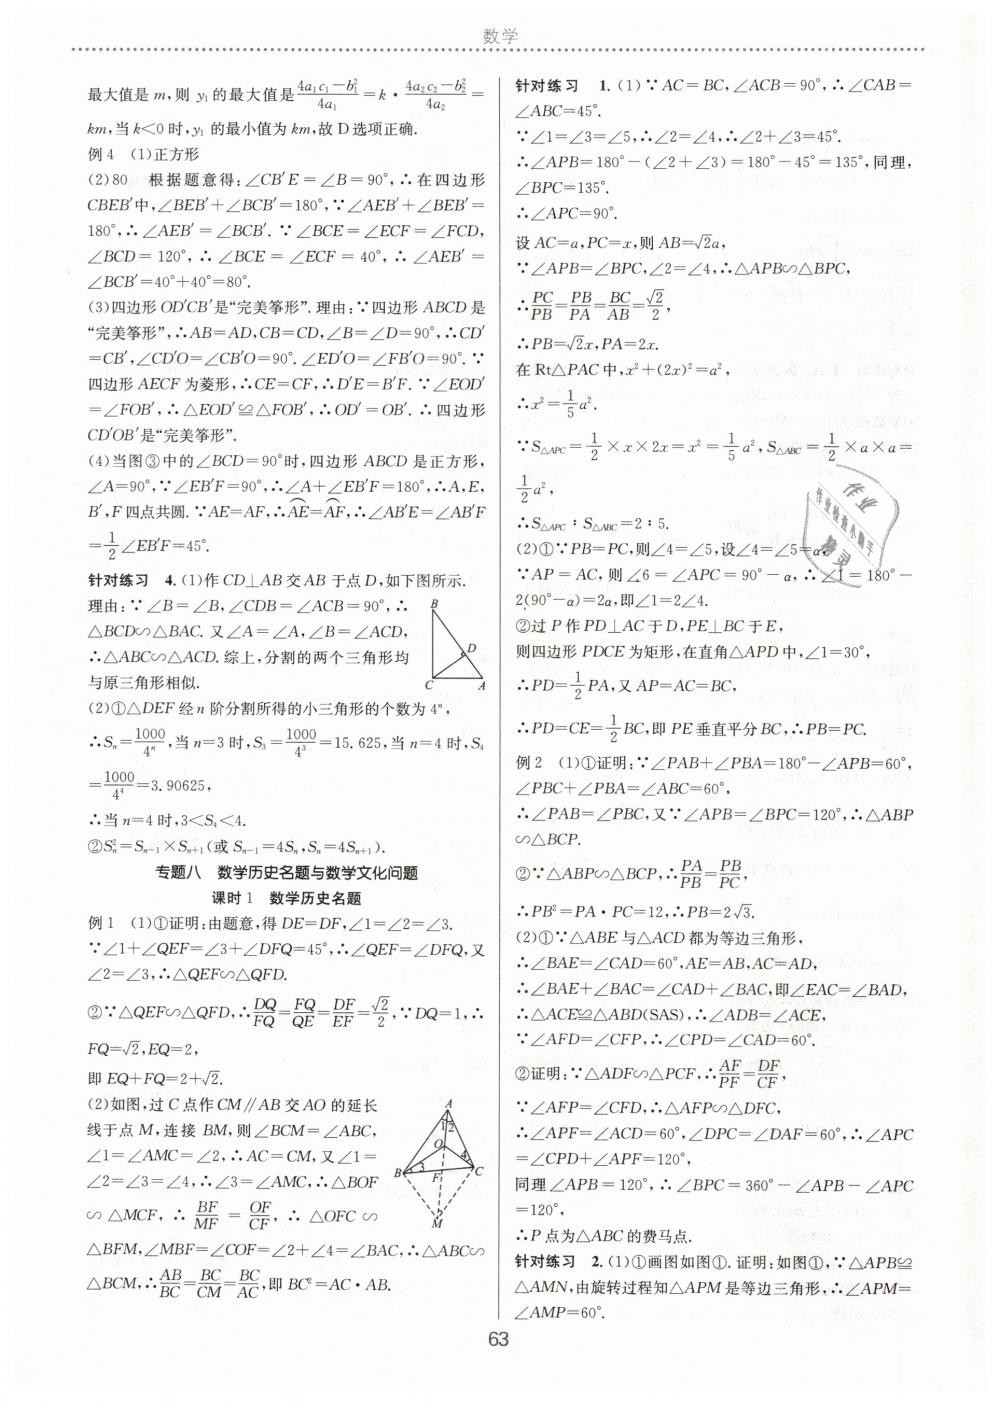 数学
最大值是 m,则 y₁ 的最大值是 (4a₁c₁−b₁²)/(4a₁) = k · (4a₂c₂−b₂²)/(4a₂) =
km,当 k<0 时,y₁ 的最小值为 km,故 D 选项正确.
例 4 (1)正方形
(2)80 根据题意得:∠CB′E=∠B=90°,∴在四边形
CBEB′中,∠BEB′+∠BCB′=180°,∵∠AEB′+∠BEB′=
180°,∴∠AEB′=∠BCB′.∵∠BCE=∠ECF=∠FCD,
∠BCD=120°,∴∠BCE=∠ECF=40°,∴∠AEB′=
∠BCB′=40°+40°=80°.
(3)四边形 OD′CB′是“完美筝形”.理由:∵四边形 ABCD 是
“完美筝形”,∴AB=AD,CB=CD,∠B=∠D=90°,∴CD′
=CB′,∠CD′O=∠CB′O=90°.∠ED′O=∠FB′O=90°.∵
四边形 AECF 为菱形,∴CE=CF,∴D′E=B′F.∵∠EOD′
=∠FOB′,∴△EOD′≌△FOB′,∴OD′=OB′.∴四边形
CD′OB′是“完美筝形”.
(4)当图③中的∠BCD=90°时,四边形 ABCD 是正方形,
∠A=90°,∵∠EB′F=90°,∴∠A+∠EB′F=180°,∴A,E,
B′,F 四点共圆.∵AE=AF,∴⌒AE=⌒AF,∴∠AB′E=∠AB′F
=1/2∠EB′F=45°.
针对练习 4.(1)作 CD⊥AB 交 AB 于点 D,如下图所示.
理由:∵∠B=∠B,∠CDB=∠ACB=90°,∴
△BCD∽△BAC.又∠A=∠A,∠B=∠ACD,
∴△ABC∽△ACD.综上,分割的两个三角形均
与原三角形相似.
B
D
C
A
(2)①△DEF 经 n 阶分割所得的小三角形的个数为 4ⁿ,
∴Sₙ=1000/4ⁿ,当 n=3 时,S₃=1000/4³=15.625,当 n=4 时,S₄
=1000/4⁴=3.90625,
∴当 n=4 时,3<S₄<4.
②Sₙ²=Sₙ₋₁×Sₙ₊₁(或 Sₙ₋₁=4Sₙ,Sₙ=4Sₙ₊₁).
专题八 数学历史名题与数学文化问题
课时 1 数学历史名题
例 1 (1)①证明:由题意,得 DE=DF,∠1=∠2=∠3.
∵∠1+∠QEF=∠3+∠DFQ=45°,∴∠QEF=∠DFQ,又
∠2=∠3,∴△QEF∽△QFD.
②∵△QEF∽△QFD,∴DQ/FQ=FQ/QE=DF/EF=√2/2,∵DQ=1,∴
FQ=√2,EQ=2,
即 EQ+FQ=2+√2.
(2)如图,过 C 点作 CM∥AB 交 AO 的延长
线于点 M,连接 BM,则∠BCM=∠ABC,
∠1=∠AMC=∠2,∴AC=CM,又∠1=
∠2=∠3=∠4,∴∠3=∠AMC,∴△BOF
∽△MCF,∴BF/MF=OF/CF,∴△OFC∽
△BFM,∠MBF=∠COF=∠2+∠4=∠BAC,∴△ABC∽
△BCM,∴AB/BC=BC/CM=BC/AC,即 BC²=AC·AB.
A
1 2
O
3
4
B
F
C
M
针对练习 1.(1)∵AC=BC,∠ACB=90°,∴∠CAB=
∠ABC=45°.
∵∠1=∠3=∠5,∴∠2=∠4,∴∠2+∠3=45°.
∴∠APB=180°−(∠2+∠3)=180°−45°=135°,同理,
∠BPC=135°.
∴∠APC=90°.
设 AC=a,PC=x,则 AB=√2a,
∵∠APB=∠BPC,∠2=∠4,∴△APB∽△BPC,
∴PC/PB=PB/PA=BC/AB=√2/2,
∴PB=√2x,PA=2x.
在 Rt△PAC 中,x²+(2x)²=a²,
∴x²=1/5a².
∵S△APC=1/2×x×2x=x²=1/5a²,S△ABC=1/2×a×a=
1/2a²,
∴S△APC∶S△ABC=2∶5.
(2)①∵PB=PC,则∠4=∠5,设∠4=∠5=α,
∵AP=AC,则∠6=∠APC=90°−α,∴∠1=180°−
2(90°−α)=2α,即∠1=2∠4.
②过 P 作 PD⊥AC 于 D,PE⊥BC 于 E,
则四边形 PDCE 为矩形,在直角△APD 中,∠1=30°,
∴PD=1/2PA,又 AP=AC=BC,
∴PD=CE=1/2BC,即 PE 垂直平分 BC,∴PB=PC.
例 2 (1)①证明:∵∠PAB+∠PBA=180°−∠APB=60°,
∠PBC+∠PBA=∠ABC=60°,
∴∠PAB=∠PBC,又∵∠APB=∠BPC=120°,∴△ABP
∽△BCP.
②∵△ABP∽△BCP,∴PA/PB=PB/PC,
∴PB²=PA·PC=12,∴PB=2√3.
(2)①∵△ABE 与△ACD 都为等边三角形,
∴∠BAE=∠CAD=60°,AE=AB,AC=AD,
∴∠BAE+∠BAC=∠CAD+∠BAC,即∠EAC=∠BAD,
∴△ACE≌△ABD(SAS),∴∠ADB=∠ACE,
∵∠AFD=∠CFP,∴∠CPD=∠CAD=60°.
②证明:∵△ADF∽△PCF,∴AF/PF=DF/CF,
∵∠AFP=∠CFD,∴△AFP∽△DFC,
∴∠APF=∠ACD=60°,∠DPC=∠DAF=60°,∴∠APC
=∠CPD+∠APF=120°,
同理∠APB=120°,∴∠BPC=360°−∠APB−∠APC
=120°,
∴P 点为△ABC 的费马点.
针对练习 2.(1)①画图如图①.证明:如图①,∵△APB≌
△AMN,由旋转过程知△APM 是等边三角形,∴∠APM=
∠AMP=60°.
作业
作业检查小助手
精灵
63